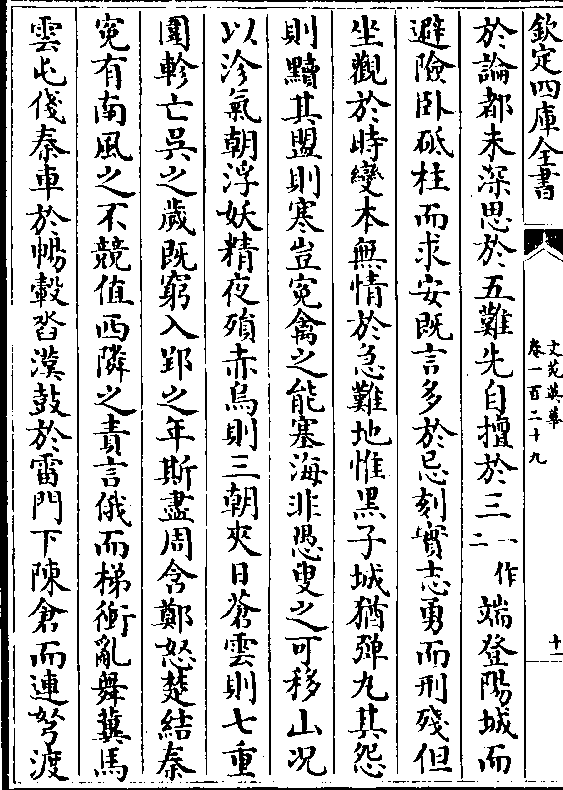 欽定四庫全書
文苑英華
卷一百二十九
十一
於論都未深思於五難先自擅於三一作二端登陽城而
避險卧砥柱而求安既言多於忌刻實志勇而刑殘但
坐觀於時變本無情於急難地惟黑子城猶彈丸其怨
則黷其盟則寒豈寃禽之能塞海非愚叟之可移山况
以沴氣朝浮妖精夜殞赤烏則三朝夾日蒼雲則七重
圍軫亡吳之歲既窮入郢之年斯盡周含鄭怒楚結秦
寃有南風之不競值西隣之責言俄而梯衝亂舞冀馬
雲屯俴秦車於暢轂沓漢鼓於雷門下陳倉而連弩渡